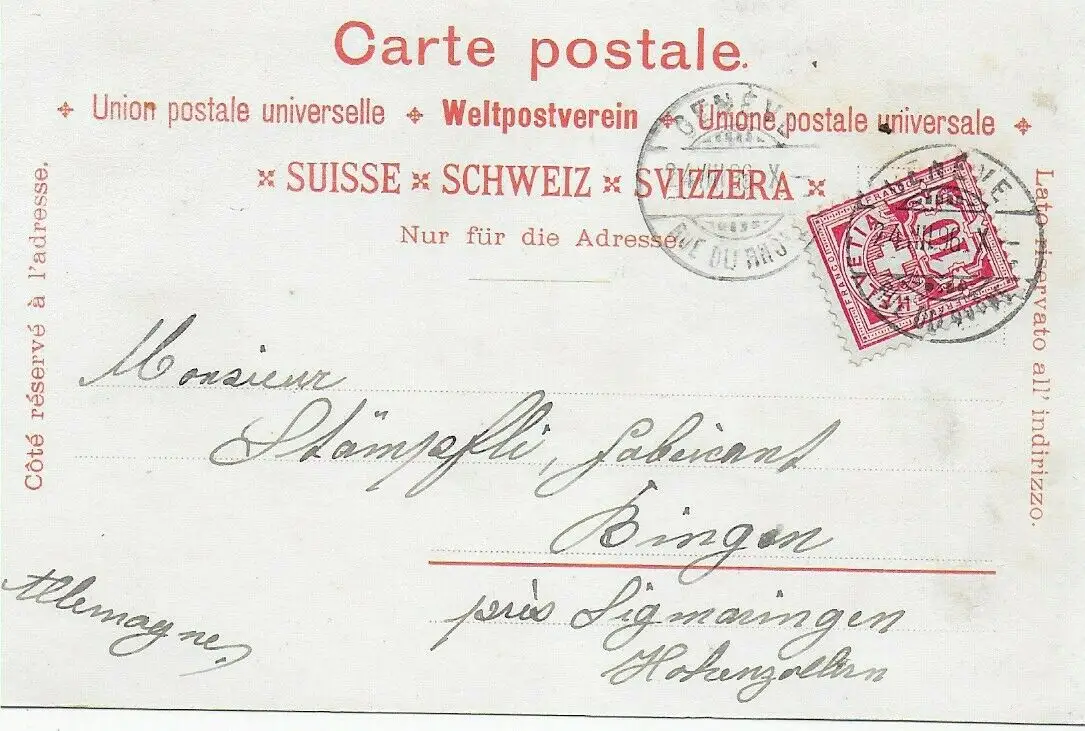 Carte postale.
Union postale universelle Weltpostverein Unione postale universale
SUISSE SCHWEIZ SVIZZERA
Nur für die Adresse.
Côté réservé à l'adresse.
Lato riservato all' indirizzo.
GENÈVE
RUE DU
GENÈVE
24.VII.96.X
HELVETIA
FRANCO
10
Monsieur
Stämpfli, fabricant
Bingen
près Sigmaringen
Hohenzollern
Allemagne.